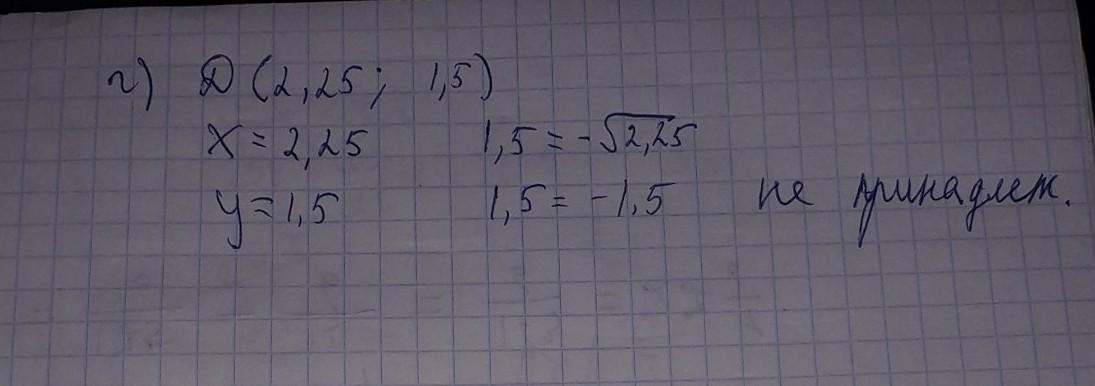 г) D (2,25; 1,5)
x = 2,25 1,5 = -√2,25
y = 1,5 1,5 = -1,5 не принадлеж.